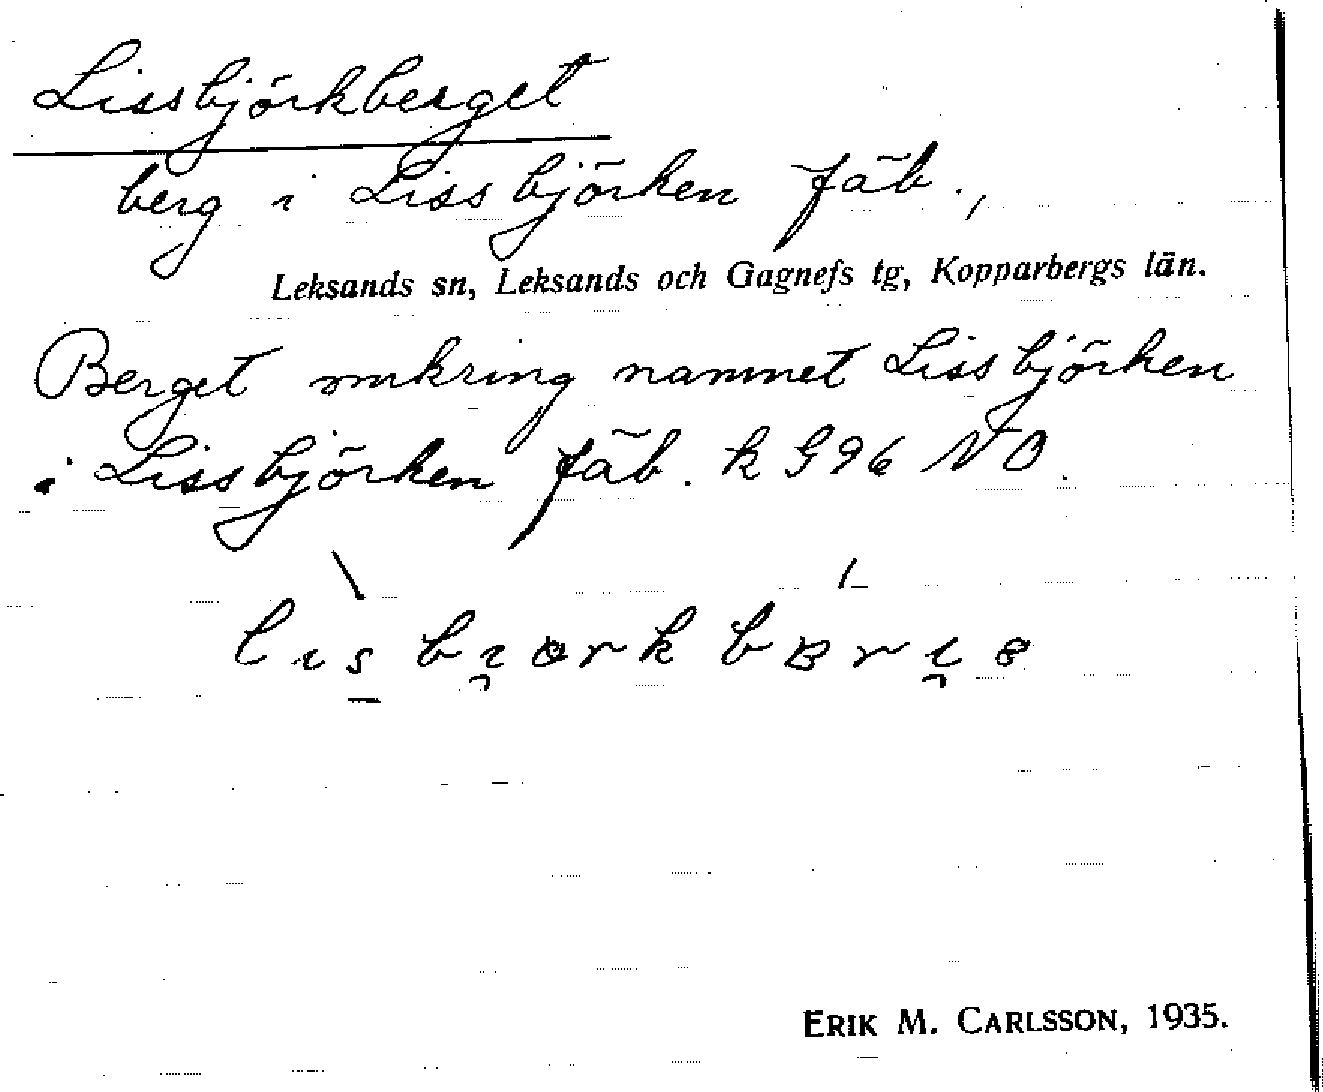 Lissbjörkberget
berg i Lissbjörken fäb.,
Leksands sn, Leksands och Gagnefs tg, Kopparbergs län.
Berget omkring namnet Lissbjörken
i Lissbjörken fäb. k G96 NO.
ERIK M. CARLSSON, 1935.